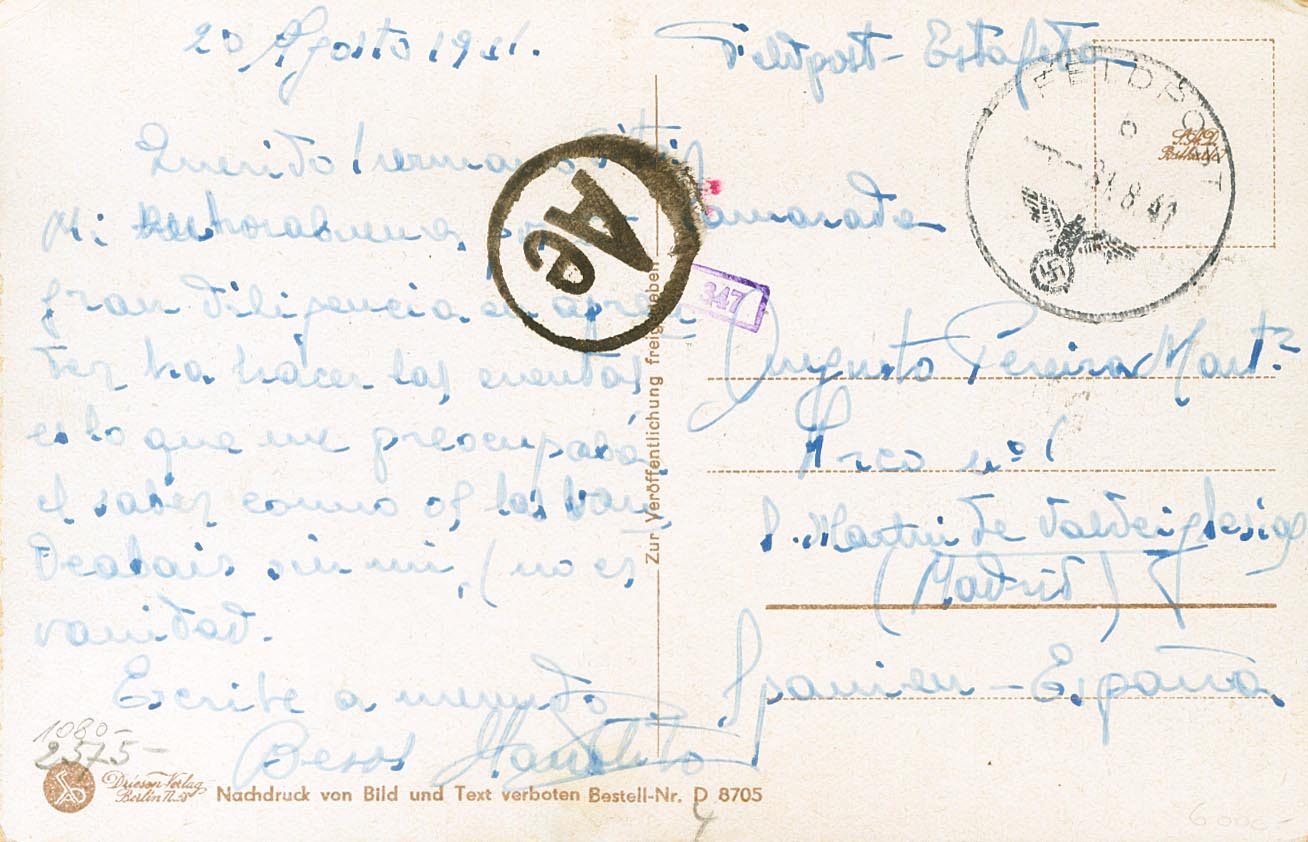 20 Agosto 1941.
Querido hermano
Mi enhorabuena, por tu
gran diligencia en apren
der ha hacer las cuentas
es lo que me preocupaba,
el saber como os las van
deabais sin mi, (no es
vanidad.
Escribe a menudo
Besos Manolito
Feldpost - Estafeta
Camarada
Augusto Pereira Mart?
Arco nº 1
S. Martin de Valdeiglesias
(Madrid)
Spanien - España
FELDPOST
b
21.8.41
Ae
347
Zur Veröffentlichung freigegeben
1080-
2575-
Driesen-Verlag
Berlin
Nachdruck von Bild und Text verboten Bestell-Nr. D 8705
4
6000-